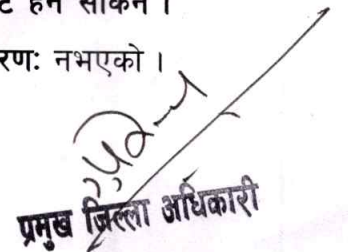 हुन सकिने ।
रण: नभएको ।
प्रमुख जिल्ला अधिकारी